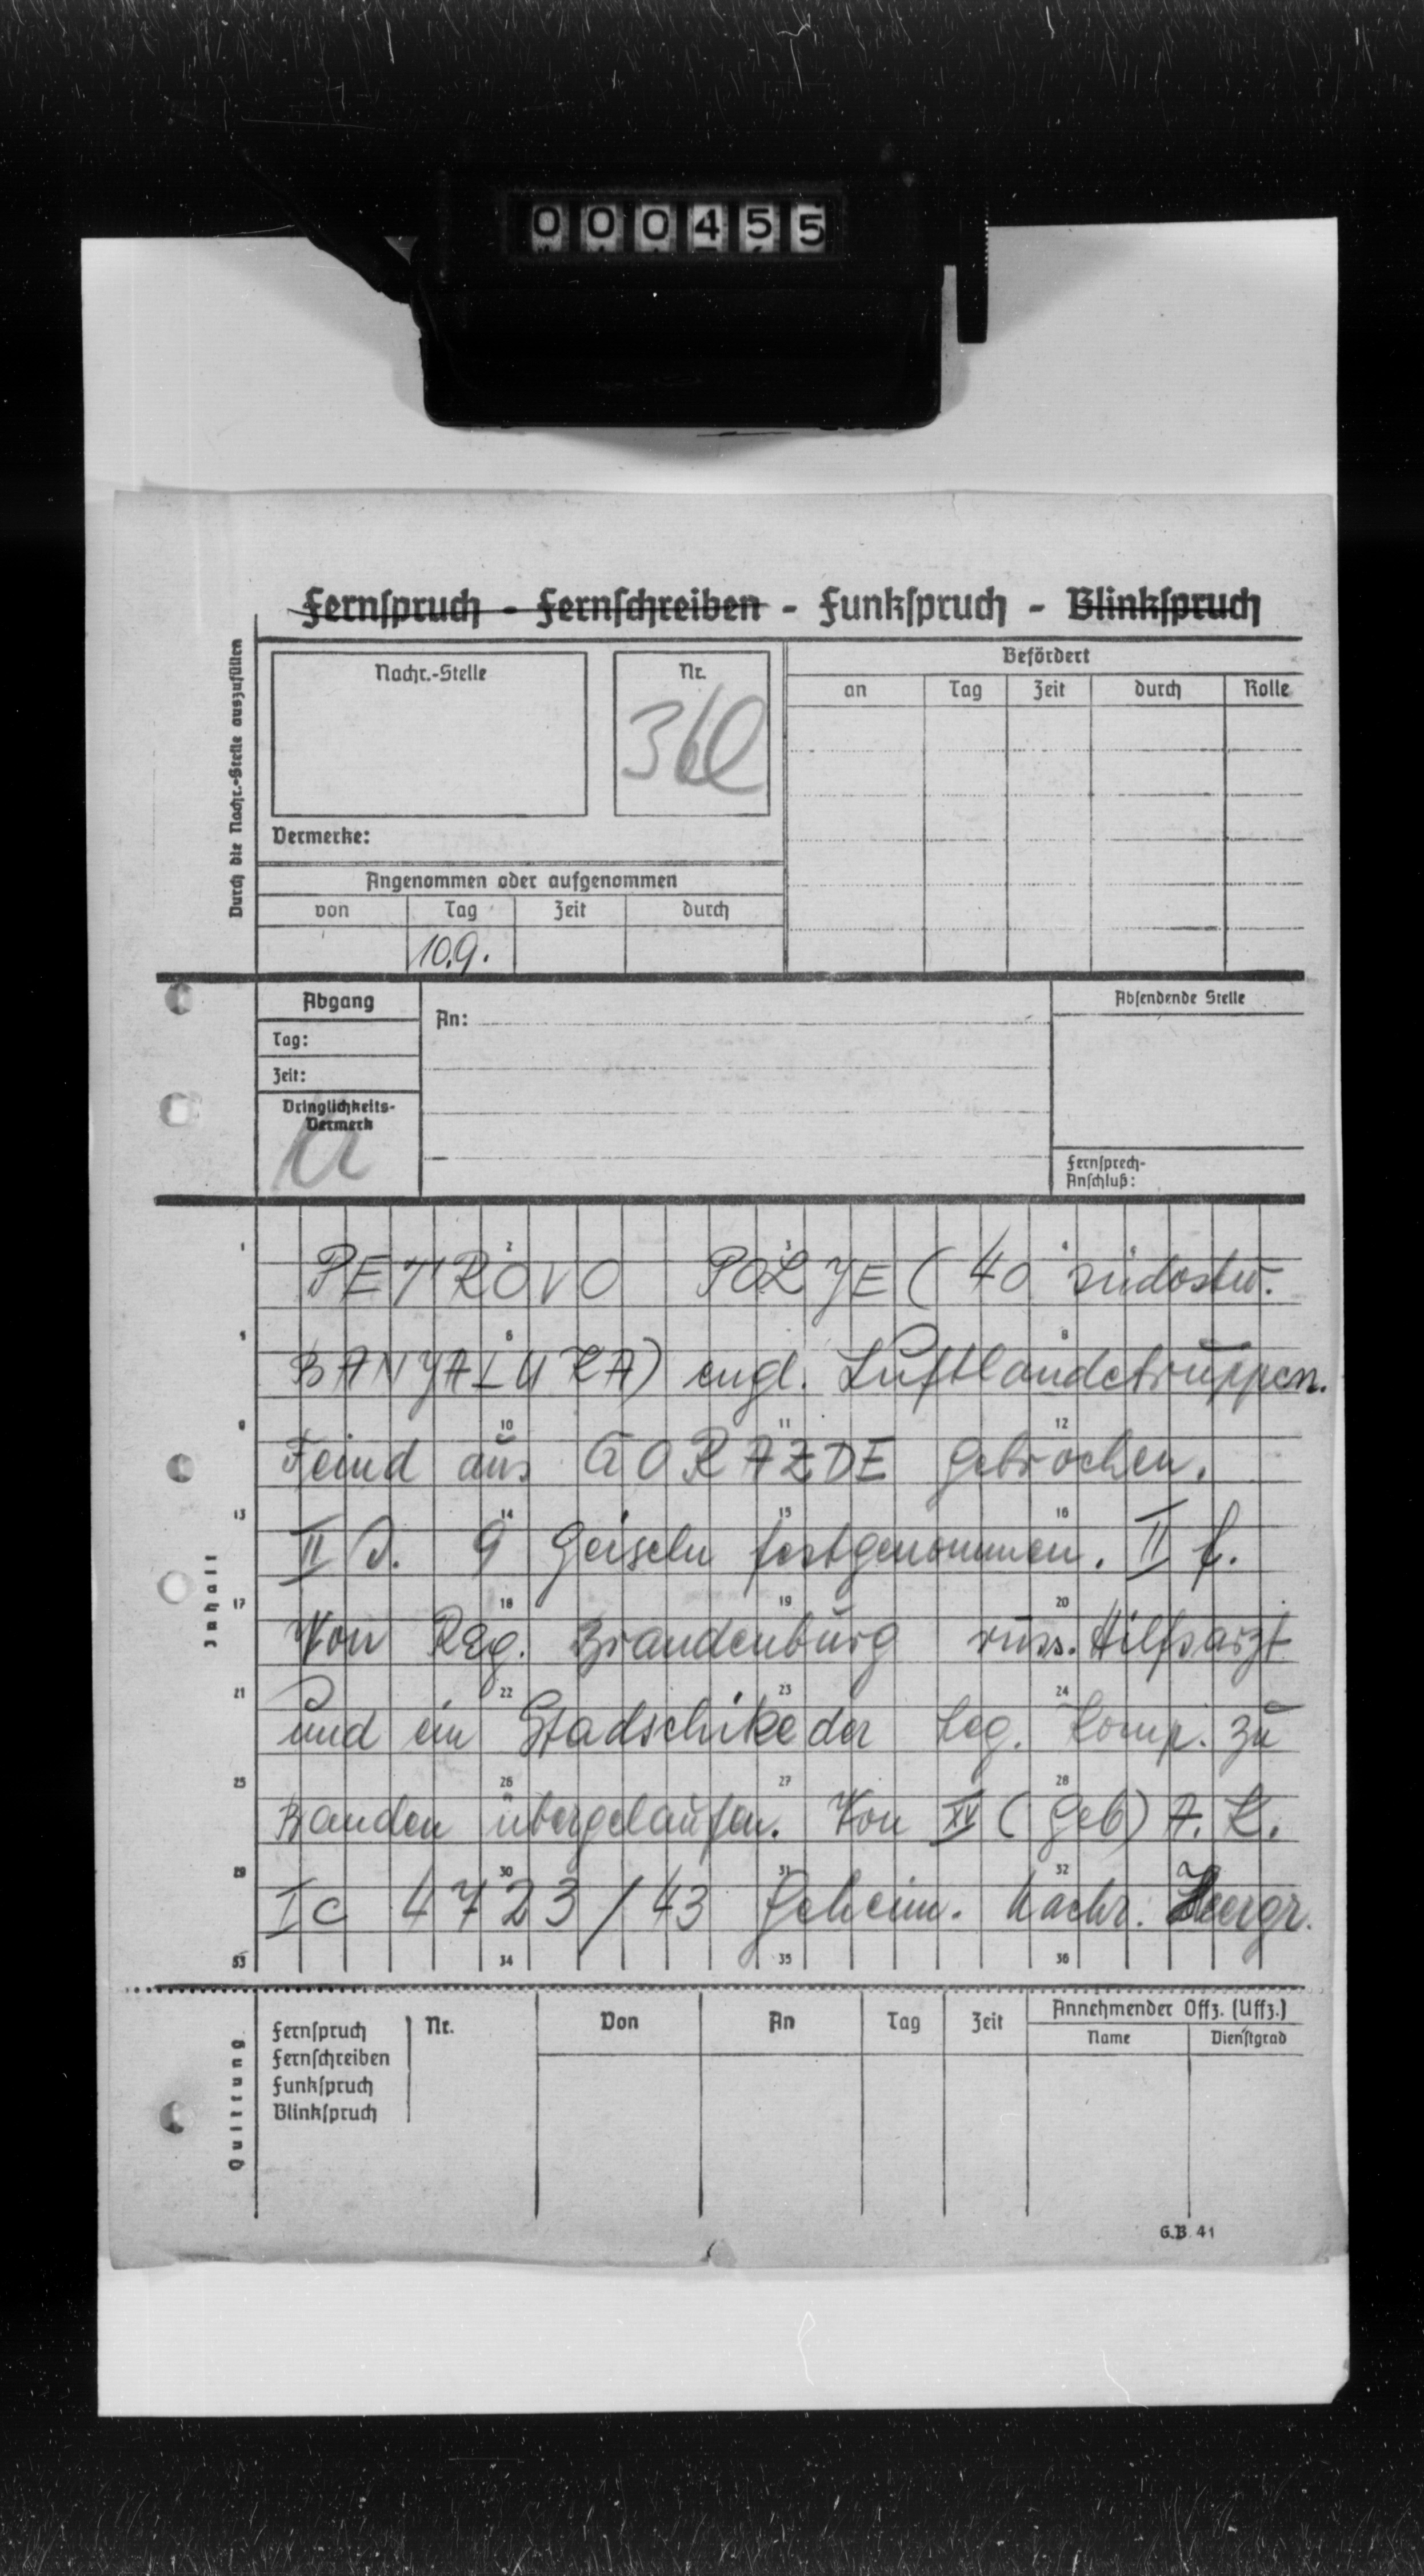 000455
Fernspruch - Fernschreiben - Funkspruch - Blinkspruch
Durch die Nachr.-Stelle auszufüllen
Nachr.-Stelle
Nr.
36
Befördert
an Tag Zeit durch Rolle
Vermerke:
Angenommen oder aufgenommen
von Tag Zeit durch
10.9.
Abgang
Tag:
Zeit:
Dringlichkeits-
Vermerk
An:
Absendende Stelle
Fernsprech-
Anschluß:
Inhalt
1 2 3 4
PETROVO POLJE (40 südostw.
5 6 8
BANJALUKA) engl. Luftlandetruppen.
9 10 11 12
Feind aus GORAZDE gebrochen.
13 14 15 16
II d. 9 Geiseln festgenommen. II f.
17 18 19 20
Von Reg. Brandenburg russ. Hilfsarzt
21 22 23 24
und ein Stadschike der Leg. Komp. zu
25 26 27 28
Banden übergelaufen. Von XV (Geb) A. K.
29 30 31 32
Ic 4723/43 Geheim. Nachr. Heergr.
33 34 35 36
Quittung
Fernspruch
Fernschreiben
Funkspruch
Blinkspruch
Nr.
Von An Tag Zeit
Annehmender Offz. (Uffz.)
Name Dienstgrad
G.B 41